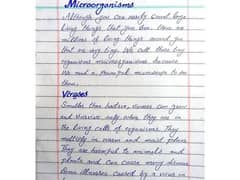 Microorganisms
Although you can easily count large
living things that you see. There are
millions of living things around you
that are very tiny. We call these tiny
organisms microorganisms because
We need a powerful microscope to see
them.
Viruses
Smaller than bacteria, viruses can grow
and survive only when they are in
the living cells of organisms. They
multiply in warm and moist places.
They are harmful to animals and
plants and can cause many diseases
Some illnesses caused by a virus in